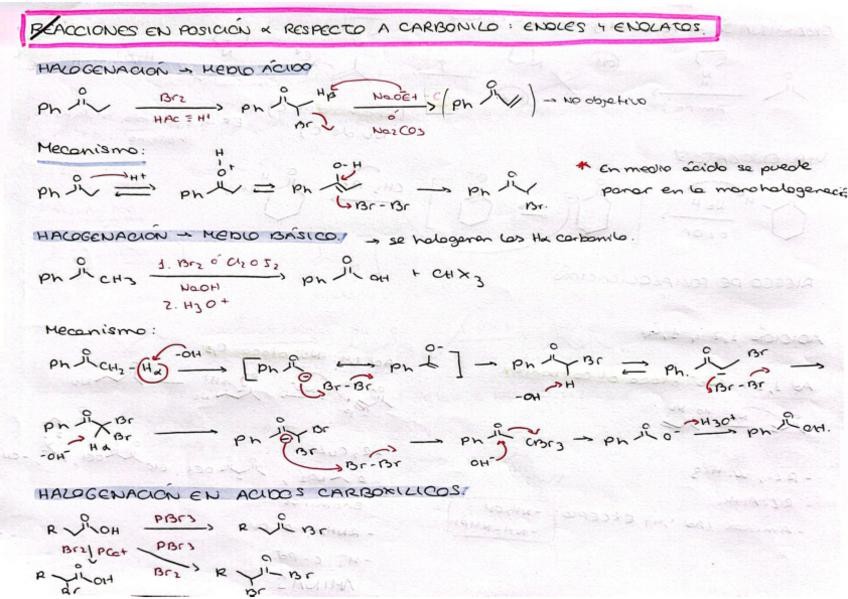 REACCIONES EN POSICIÓN α RESPECTO A CARBONILO: ENOLES Y ENOLATOS.
HALOGENACIÓN → MEDIO ÁCIDO
Ph O Br2 HAc ≡ H+ Ph O Hβ Br NaOEt ó Na2CO3 (Ph O) → No objetivo
Mecanismo:
Ph O H+ ⇌ Ph O+ H ⇌ Ph O-H Br-Br → Ph O Br.
* En medio ácido se puede
parar en la monohalogenació
HALOGENACIÓN → MEDIO BÁSICO. → se halogenan los Hα carbonilo.
Ph O CH3 1. Br2 ó Cl2 O I2 NaOH 2. H3O+ Ph O OH + CHX3
Mecanismo:
Ph O CH2-Hα -OH → [Ph O ⊖ Br-Br ↔ Ph O-] → Ph O Br H -OH ⇌ Ph. O Br Br-Br →
Ph O Br Br Hα -OH → Ph O ⊖ Br Br Br-Br → Ph O CBr3 OH- → Ph O O- H3O+ → Ph O OH.
HALOGENACIÓN EN ACIDOS CARBOXILICOS.
R O OH PBr3 R O Br
Br2/PCat PBr3
R O OH Br Br2 R O Br Br